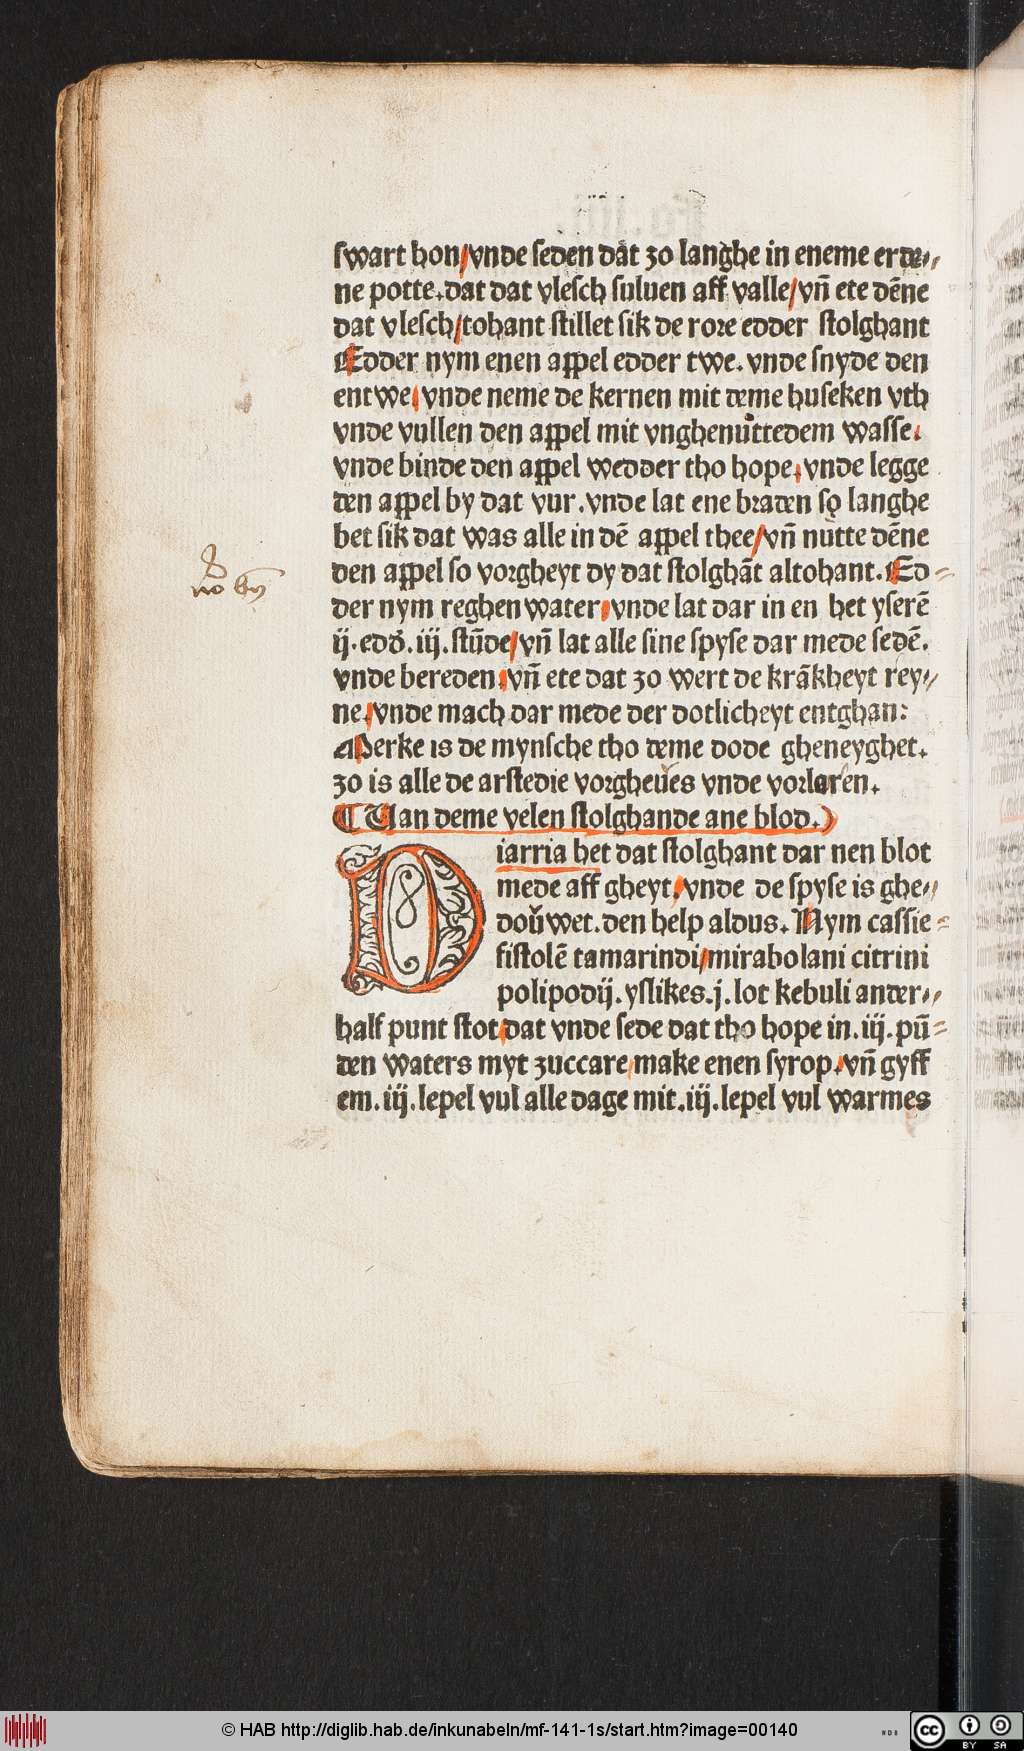 swart hon/vnde seden dat zo langhe in eneme erde⸗
ne potte.dat dat vlesch suluen aff valle/vñ ete dẽne
dat vlesch/tohant stillet sik de rore edder stolghant
Edder nym enen appel edder twe. vnde snyde den
entwe/vnde neme de kernen mit deme huseken vth
vnde vullen den appel mit vnghenuͤttedem wasse.
vnde binde den appel wedder tho hope.vnde legge
den appel by dat vur.vnde lat ene braden so langhe
bet sik dat was alle in dẽ appel thee/vñ nuͤtte dẽne
den appel so vorgheyt dy dat stolghãt altohant.Ed⸗
der nym reghen water.vnde lat dar in en het yserẽ
ij.edđ.iij.stũde/vñ lat alle sine spyse dar mede sedẽ.
vnde bereden.vñ ete dat zo wert de krãkheyt rey⸗
ne.vnde mach dar mede der dotlicheyt entghan:
Merke is de mynsche tho deme dode gheneyghet.
zo is alle de arstedie vorgheues vnde vorloren.
¶Uan deme velen stolghande ane blod.
Diarria het dat stolghant dar nen blot
mede aff gheyt.vnde de spyse is ghe⸗
doůwet.den help aldus.Nym cassie⸗
fistolẽ tamarindi/mirabolani citrini
polipodij.yslikes.j.lot kebuli ander⸗
half punt stot.dat vnde sede dat tho hope in.iij.pũ⸗
den waters myt zuccare/make enen syrop.vñ gyff
em.iij.lepel vul alle dage mit.iij.lepel vul warmes
© HAB http://diglib.hab.de/inkunabeln/mf-141-1s/start.htm?image=00140
WDB
cc
BY SA